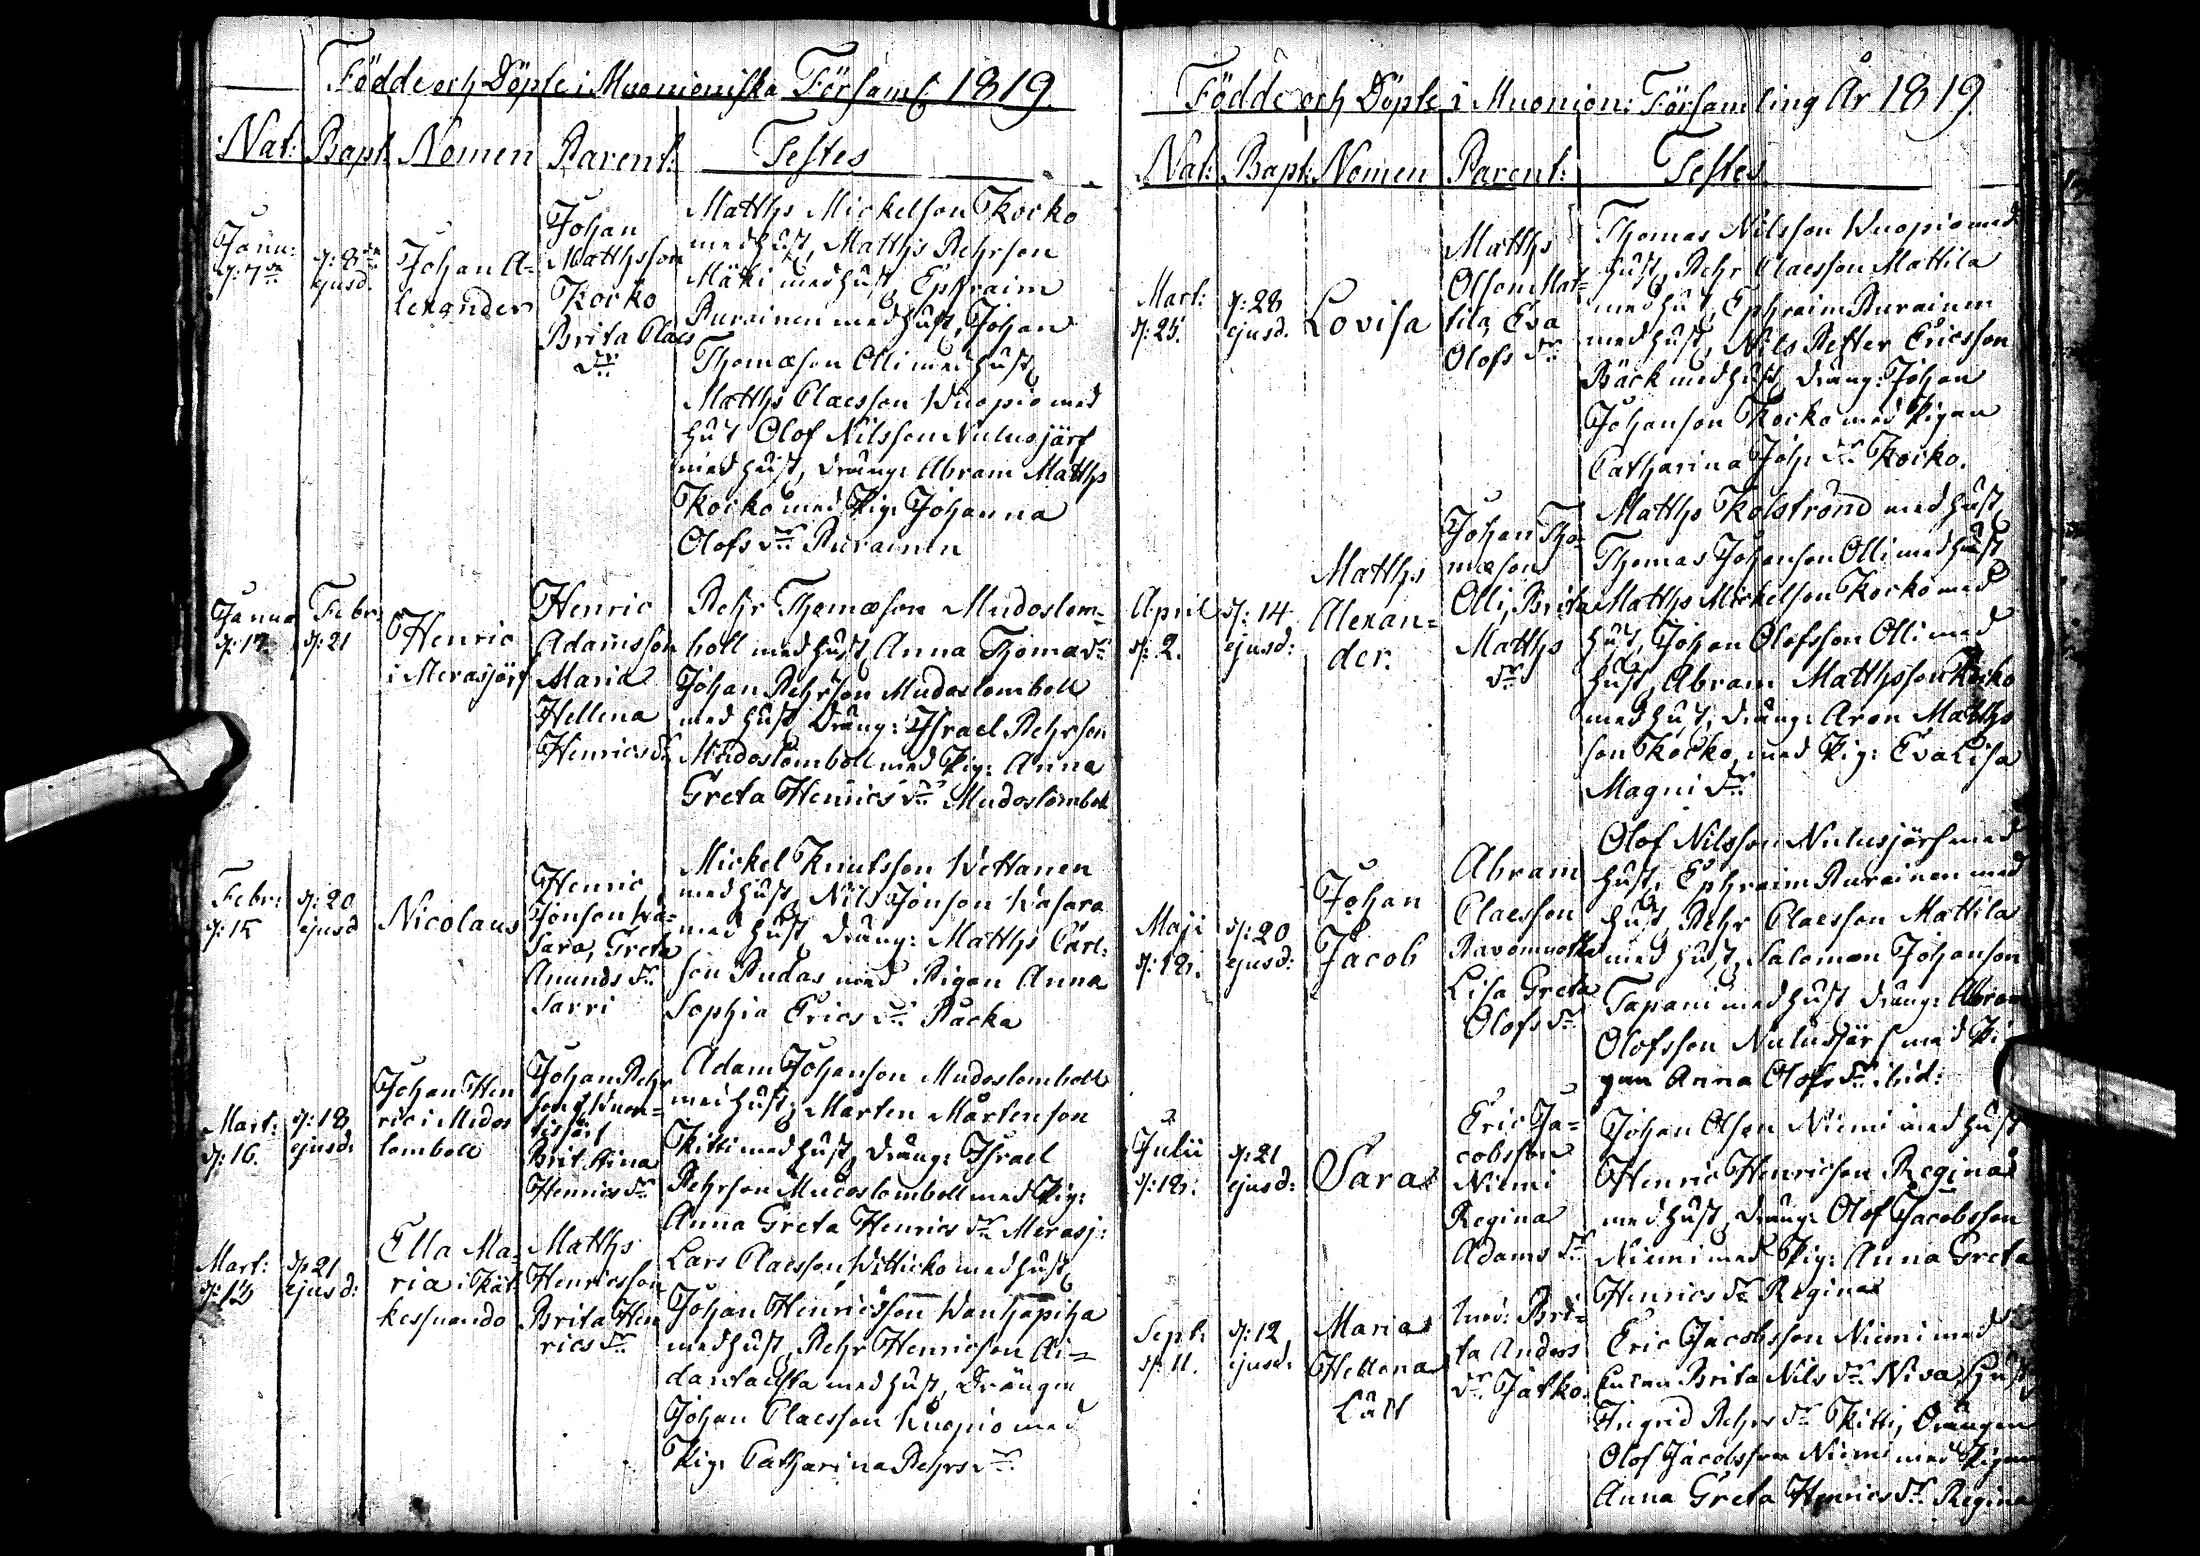 Födde och Döpte i Muonioniska Församl 1819
Nat: Bapt Nomen Parent: Testes
Janu:
d: 7de
d: 8de
ejusd.
Johan A=
lexander
Johan
Matthsson
Kocko
Brita Claes
dr
Matths Mickelson Kocko
med hust, Matths Pehrson
Mäki med hust, Ephraim
Rurainen med hust, Johan
Thomæson Olli med hust,
Matths Claesson Wuopio med
hust Olof Nilsson Nulusjärf
med hust, dräng: Abram Matths
Kocko med Pig: Johanna
Olofs dr Rurainen
Janua
d: 17.
Febr:
d: 21
Henric
i Merasjärf
Henric
Adamsson
Maria
Hellena
Henrics dr
Pehr Thomæson Mudoslom=
boll med hust, Anna Thomæ dr
Johan Pehrson Mudoslomboll
med hust Dräng: Israel Pehrson
Mudoslomboll med Pig: Anna
Greta Henrics dr Mudoslomboll
Febr:
d: 15
d: 20
ejusd
Nicolaus
Henric
Jönson Wa=
sara, Greta
Amunds dr
Sarri
Mickel Knutsson Wettanen
med hust, Nils Jönson Wasara
med hust dräng: Matths Carl:
son Rudas med Pigan Anna
Sophia Erics dr Packa
Mart:
d: 16.
d: 18
ejusd:
Johan Hen
ric i Mudos
lomboll
Johan Pehr
son
Brit Stina
Henrics dr
Adam Johanson Mudoslomboll
med hust, Mårten Mårtenson
Kitti med hust, dräng: Israel
Pehrson Mudoslomboll med Pig:
Anna Greta Henrics dr Merasj:
Mart:
d: 13
d: 21
ejusd:
Ella Ma=
ria i Kät
kesuando
Matths
Henricsson
Brita Hen
rics dr
Lars Claesson Witticko med hust,
Johan Henricsson Wanhapiha
med hust, Pehr Henricson Ai=
dantausta med hust, Drängen
Johan Claesson Kuopio med
Pig: Catharina Pehrs dr
Födde och Döpte i Muonion: Församling År 1819.
Nat: Bapt: Nomen Parent: Testes
Mart:
d: 25.
d: 28
ejusd.
Lovisa
Matths
Olson Mat=
tila, Eva
Olofs dr
Thomas Nilsson Wuopio med
hust, Pehr Claesson Mattila
med hust, Ephraim Rurainen
med hust, Nils Petter Ericsson
Bäck med hust, dräng: Johan
Johanson Kocko med Pigan
Catharina Joh: dr Kocko.
April
d: 2.
d: 14
ejusd:
Matths
Alexan=
der.
Johan Tho=
mæson
Olli, Brita
Matths
dr
Matths Kolström med hust,
Thomas Johanson Olli med hust
Matths Mickelson Kocko med
hust, Johan Olofsson Olli med
hust, Abram Matthsson Kocko
med hust, dräng: Aron Matths
son Kocko, med Pig: Eva Lisa
Magni dr
Maji
d: 18.
d: 20
ejusd:
Johan
Jacob
Abram
Claesson
Ravomuotka
Lisa Greta
Olofs dr
Olof Nilsson Nulusjärf med
hust, Ephraim Rurainen med
hust, Pehr Claesson Mattila
med hust, Salomon Johanson
Tapani med hust dräng: Abram
Olofsson Nulusjärf med Pi
gan Anna Olofs dr ibid:
Julii
d: 18.
d: 21
ejusd:
Sara
Eric Ja=
cobsson
Niemi
Regina
Adams dr
Johan Olson Niemi med hust
Henric Henricson Regina
med hust, dräng: Olof Jacobsson
Niemi med Pig: Anna Greta
Henrics dr Regina
Sept:
d: 11.
d: 12
ejusd:
Maria
Hellena
Bri=
ta Anders
dr Jatko
Eric Jacobsson Niemi med
Brita Nils dr Niva,
Ingrid Pehrs dr Kitti, Drängen
Olof Jacobsson Niemi med Pigan
Anna Greta Henrics dr Regina